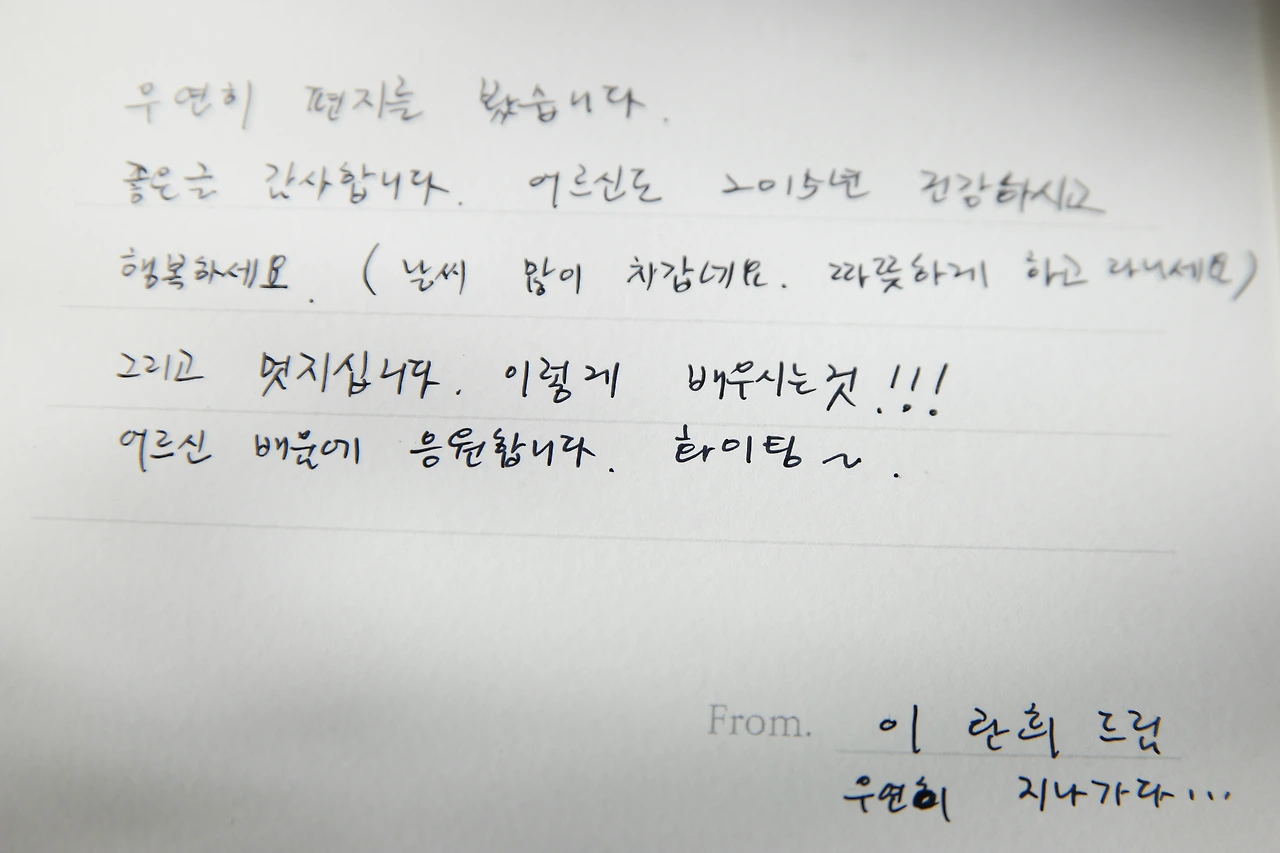 우연히 편지를 봤습니다.
좋은글 감사합니다. 어르신도 2015년 건강하시고
행복하세요. (날씨 많이 차갑네요. 따뜻하게 하고 다니세요)
그리고 멋지십니다. 이렇게 배우시는것!!!
어르신 배움에 응원합니다. 화이팅~.
From. 이 란희 드림
우연히 지나가다...